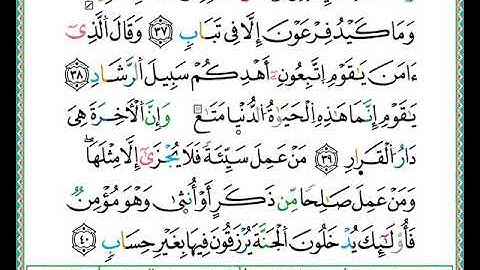 وَمَا كَيْدُ فِرْعَوْنَ إِلَّا فِى تَبَابٍ ٣٧ وَقَالَ ٱلَّذِىٓ
ءَامَنَ يَـٰقَوْمِ ٱتَّبِعُونِۦٓ أَهْدِكُمْ سَبِيلَ ٱلرَّشَادِ ٣٨
يَـٰقَوْمِ إِنَّمَا هَـٰذِهِ ٱلْحَيَوٰةُ ٱلدُّنْيَا مَتَـٰعٌ وَإِنَّ ٱلْأَخِرَةَ هِىَ
دَارُ ٱلْقَرَارِ ٣٩ مَنْ عَمِلَ سَيِّئَةً فَلَا يُجْزَىٰٓ إِلَّا مِثْلَهَا ۖ
وَمَنْ عَمِلَ صَـٰلِحًا مِّن ذَكَرٍ أَوْ أُنثَىٰ وَهُوَ مُؤْمِنٌ
فَأُو۟لَـٰٓئِكَ يُدْخَلُونَ ٱلْجَنَّةَ يُرْزَقُونَ فِيهَا بِغَيْرِ حِسَابٍ ٤٠